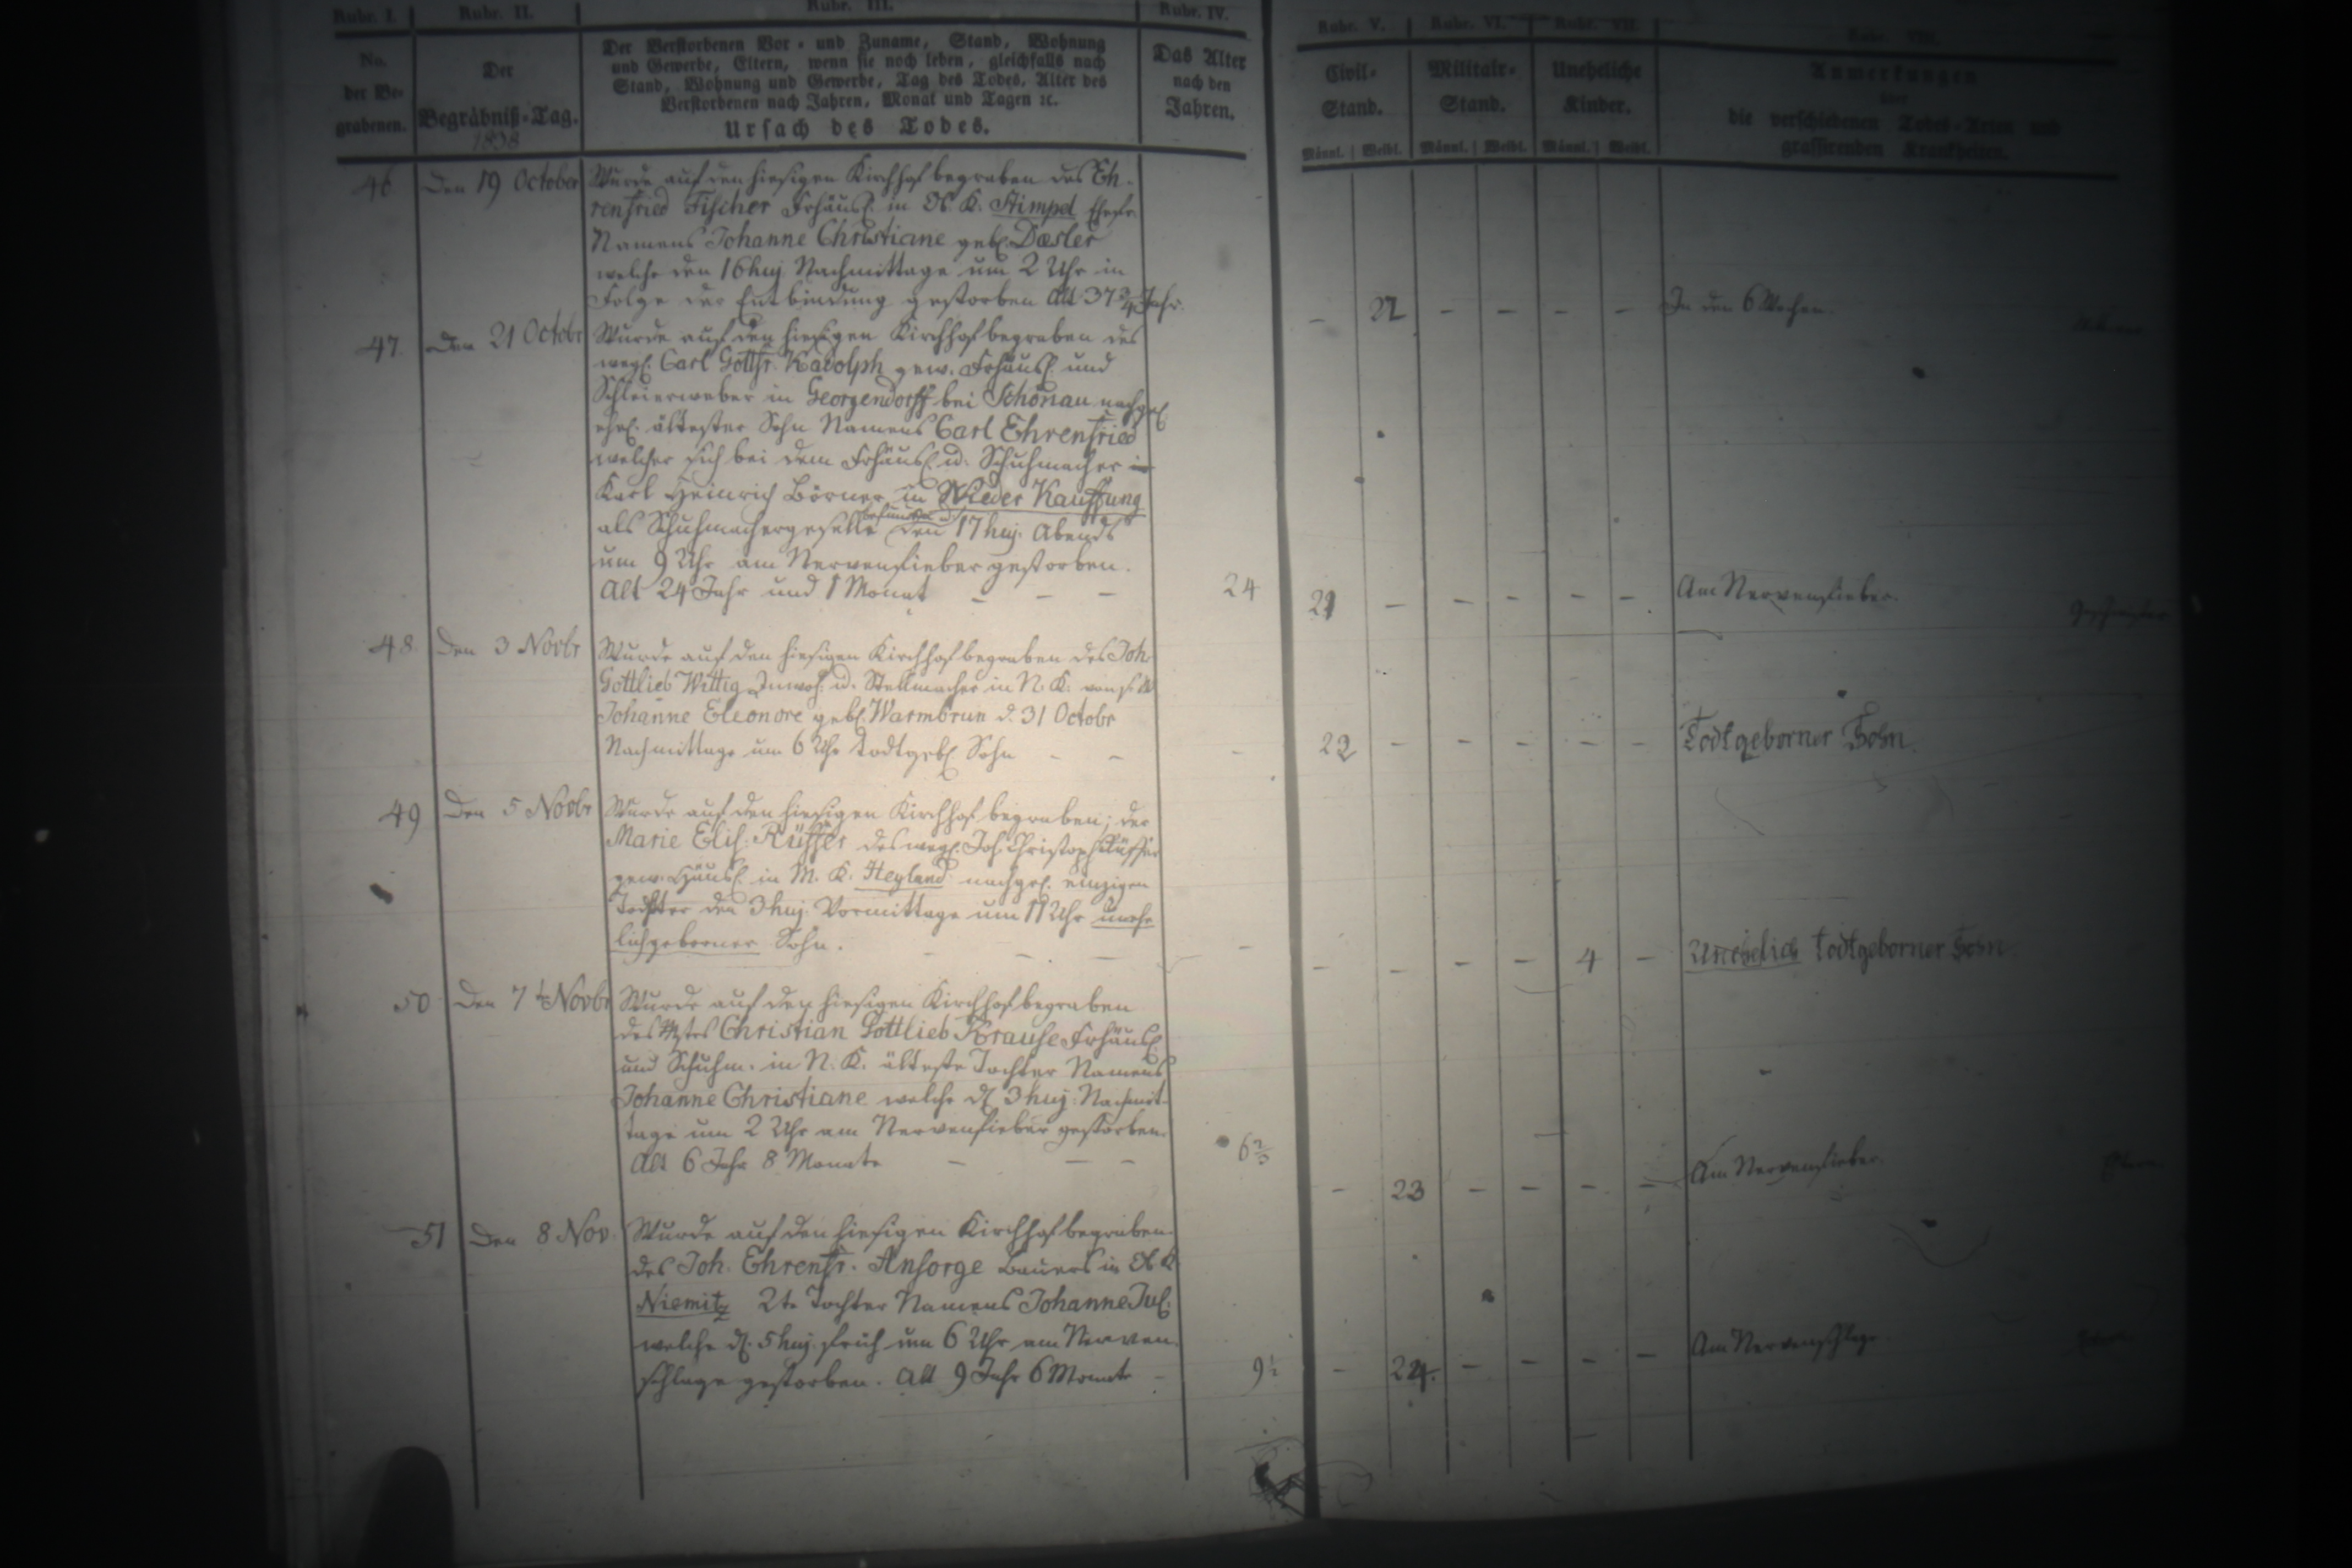 Rubr. I. Rubr. II. Rubr. III. Rubr. IV. Rubr. V. Rubr. VI. Rubr. VII. Rubr. VIII.
No. der Be-grabenen.
Der Begräbniß-Tag.
1838
Der Verstorbenen Vor- und Zuname, Stand, Wohnung
und Gewerbe, Eltern, wenn sie noch leben, gleichfalls nach
Stand, Wohnung und Gewerbe, Tag des Todes, Alter des
Verstorbenen nach Jahren, Monat und Tagen ꝛc.
Ursach des Todes.
Das Alter
nach den
Jahren.
Civil-Stand.
Militair-Stand.
Uneheliche Kinder.
Männl. Weibl. Männl. Weibl. Männl. Weibl.
Anmerkungen
über
die verschiedenen Todes-Arten und
grassirenden Krankheiten.
46 Den 19 October Wurde auf den hiesigen Kirchhof begraben des Eh-
renfried Fischer Frhäusl. in Ob. K. Stimpel Ehefr.
Namens Johanne Christiane geb. Daesler
welche den 16 huj. Nachmittage um 2 Uhr in
Folge der Entbindung gestorben Alt 37 3/4 Jahr.
– 22 – – – – In den 6 Wochen.
47. Den 21 Octobr Wurde auf den hiesigen Kirchhof begraben des
weyl. Carl Gottfr. Kadolph gew. Frhäusl. und
Schleierweber in Georgendorff bei Schönau nachgel.
ehel. ältester Sohn Namens Carl Ehrenfried
welcher sich bei dem Frhäusl. u. Schuhmacher in
Karl Heinrich Börner in Nieder Kauffung
als Schuhmachergeselle befunden u. den 17 huj. Abends
um 9 Uhr am Nervenfieber gestorben.
Alt 24 Jahr und 1 Monat – – –
24 21 – – – – – Am Nervenfieber.
48. Den 3 Novbr Wurde auf den hiesigen Kirchhof begraben des Joh
Gottlieb Wittig Inwoh. u. Stellmacher in N. K. von s. W
Johanne Eleonore geb. Warmbrun d. 31 Octobr
Nachmittage um 6 Uhr todtgeb. Sohn – –
– 22 – – – – – Todtgeborner Sohn.
49 Den 5 Novbr Wurde auf den hiesigen Kirchhof begraben; der
Marie Elis. Rüffer des weyl. Joh. Christoph Rüffer
gew. Häusl. in M. K. Heyland nachgel. einzigen
Tochter den 3 huj. Vormittage um 11 Uhr unehe
lichgeborner Sohn. – – –
– – – – – 4 – Unehelich todtgeborner Sohn
50 Den 7 t. Novbr Wurde auf den hiesigen Kirchhof begraben
des Christian Gottlieb Krause Frhäusl.
und Schuhm. in N. K. älteste Tochter Namens
Johanne Christiane welche d. 3 huj. Nachmit-
tage um 2 Uhr am Nervenfieber gestorben.
Alt 6 Jahr 8 Monate – – –
6 2/3 – 23 – – – – Am Nervenfieber.
51 Den 8 Nov. Wurde auf den hiesigen Kirchhof begraben.
des Joh. Ehrenfr. Ansorge Bauers in Ob. K.
Niemitz 2te Tochter Namens Johanne Jul.
welche d. 5 huj. früh um 6 Uhr am Nerven-
schlage gestorben. Alt 9 Jahr 6 Monate –
9 1/2 – 24. – – – – Am Nervenschlage.